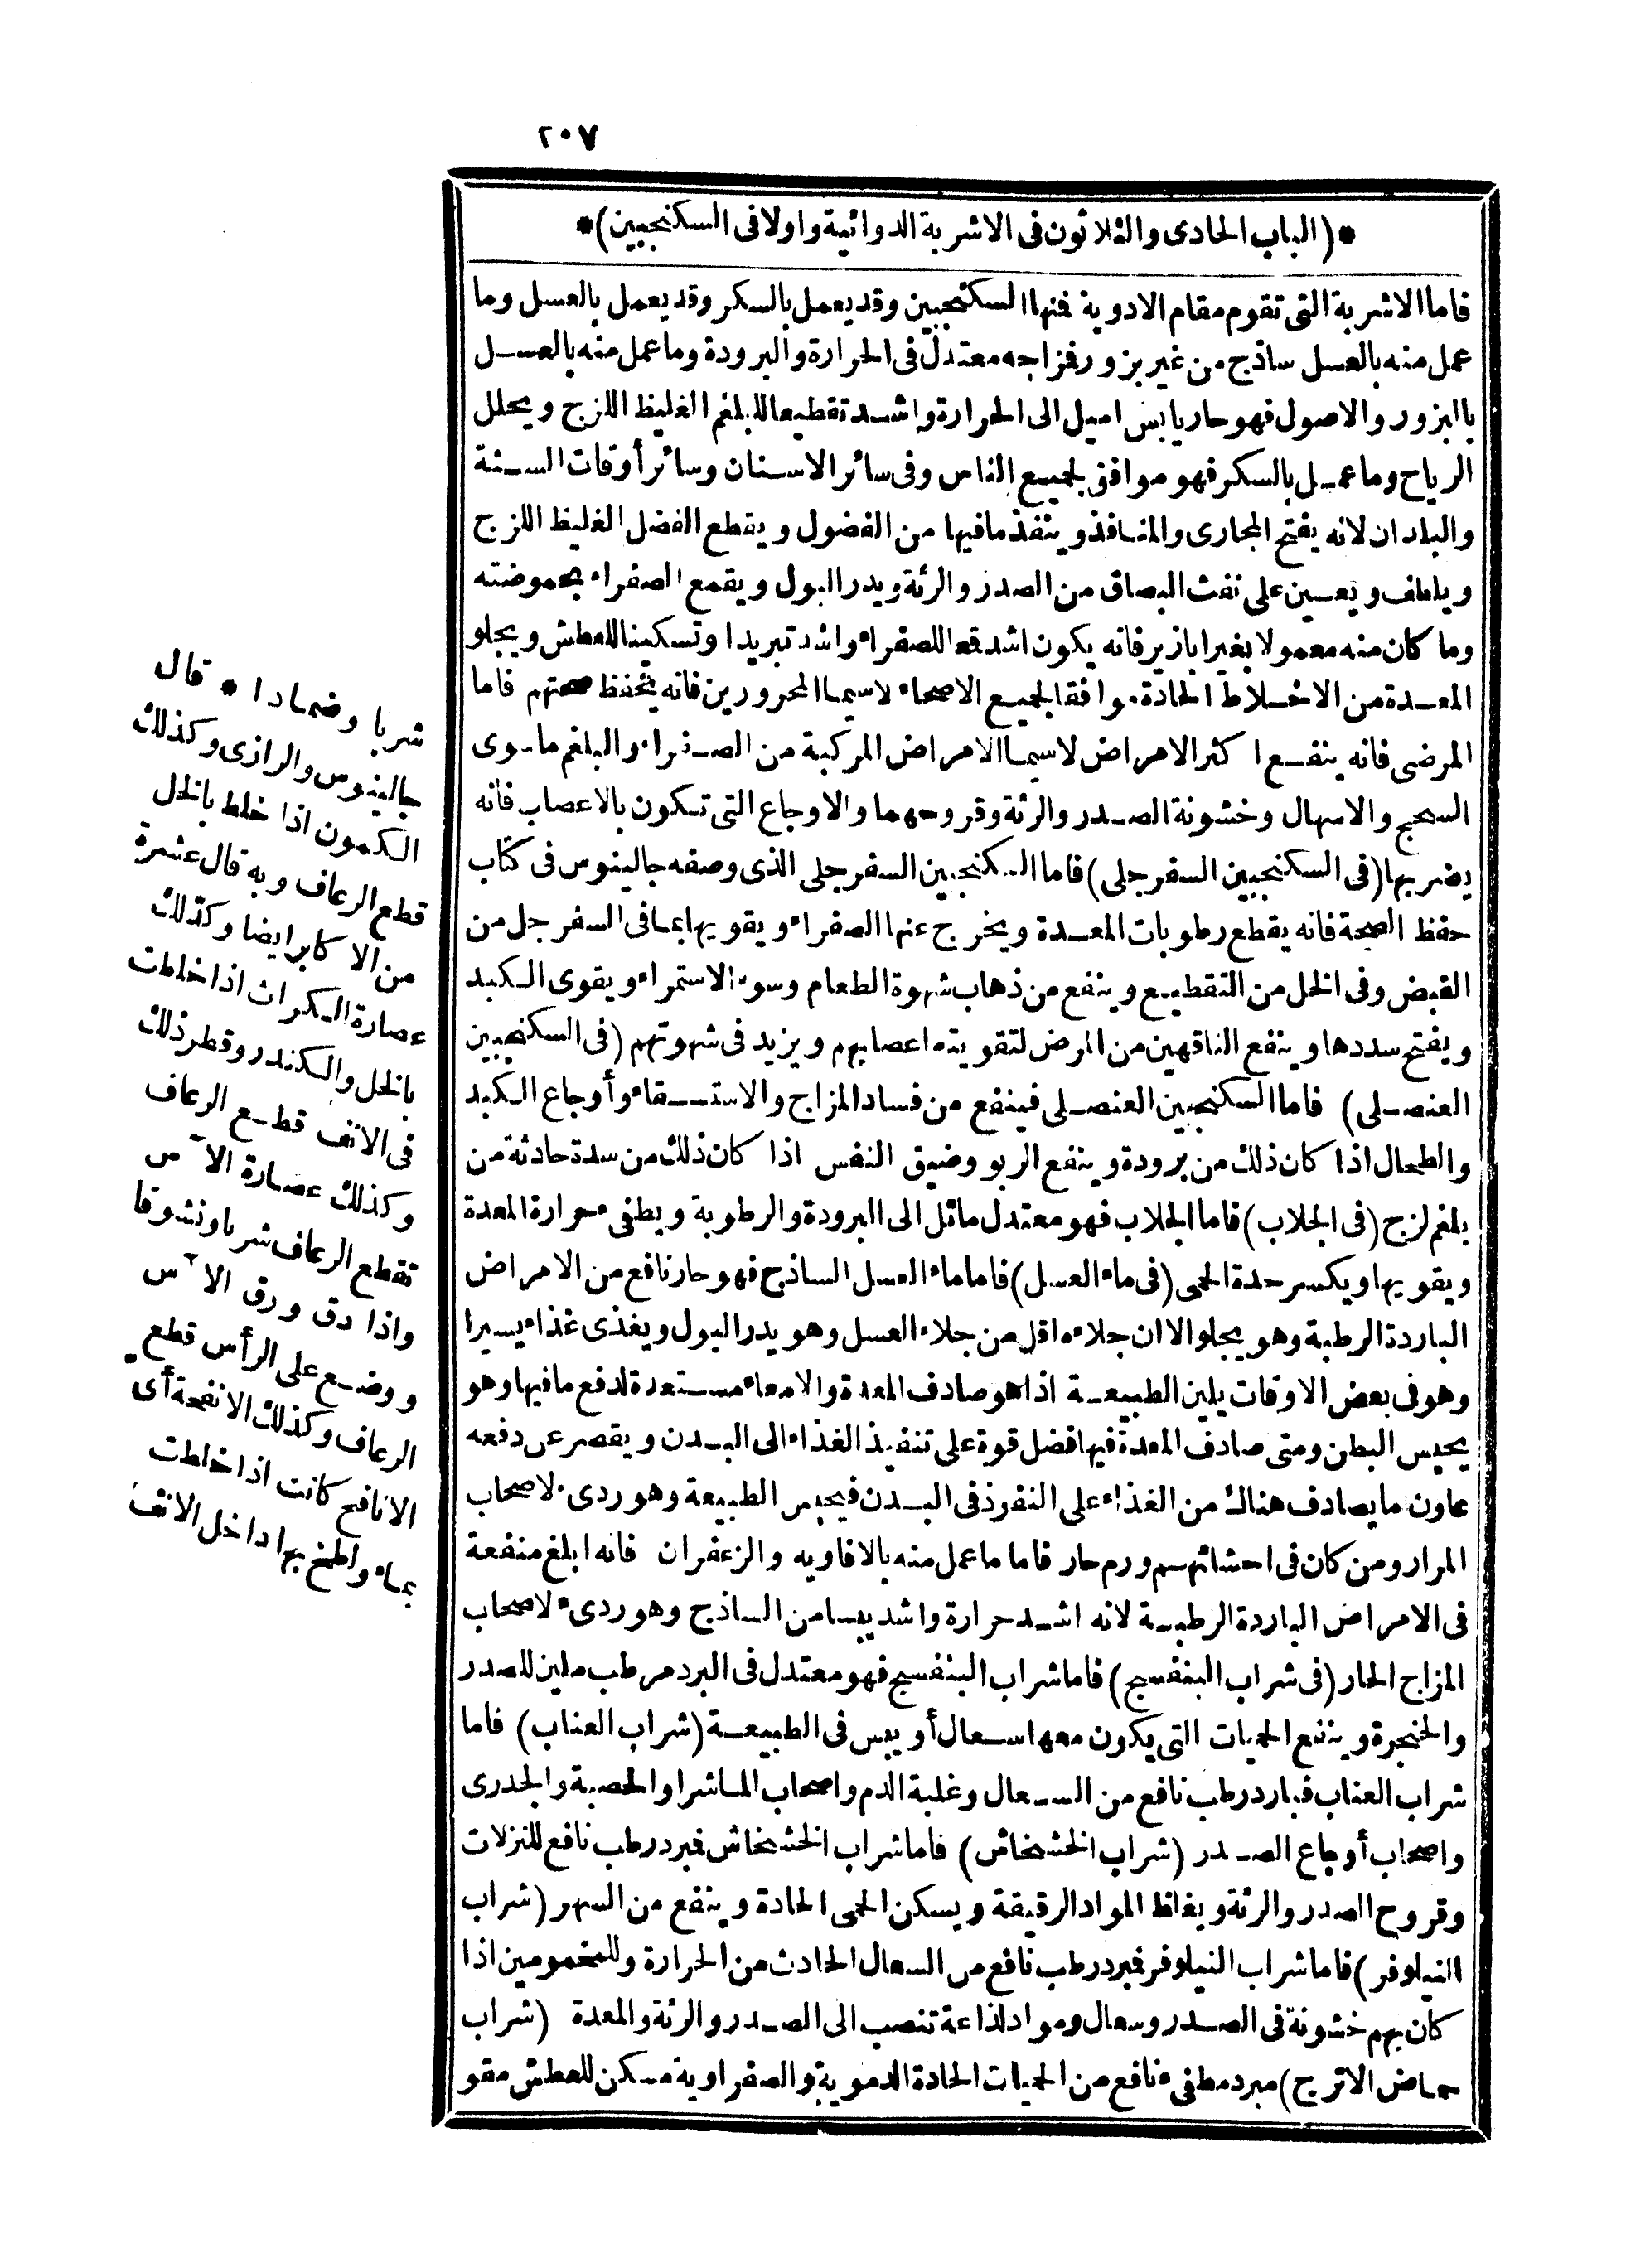 ٢٠٧
*(الباب الحادى والثلاثون فى الاشربة الدوائية واولا فى السكنجبين)*
فاما الاشربة التى تقوم مقام الادوية فمنها السكنجبين وقد يعمل بالسكر وقد يعمل بالعسل وما
عمل منه بالعسل ساذج من غير بزور فمزاجه معتدل فى الحرارة والبرودة وما عمل منه بالعسل
بالبزور والاصول فهو حار يابس اميل الى الحرارة واشد تقطيعا للبلغم الغليظ اللزج ويحلل
الرياح وما عمل بالسكر فهو موافق لجميع الناس وفى سائر الاسنان وسائر أوقات السنة
والبلدان لانه يفتح المجارى والمنافذ وينفذ ما فيها من الفضول ويقطع الفضل الغليظ اللزج
ويلطف ويعين على نفث البصاق من الصدر والرئة ويدر البول ويقمع الصفراء بحموضته
وما كان منه معمولا بغير ابازير فانه يكون اشد قمعا للصفراء واشد تبريدا وتسكينا للعطش ويجلو
المعدة من الاخلاط الحادة موافقا لجميع الاصحاء لاسيما المحرورين فانه يحفظ صحتهم فاما
المرضى فانه ينفع اكثر الامراض لاسيما الامراض المركبة من الصفراء والبلغم ما سوى
السحج والاسهال وخشونة الصدر والرئة وقروحهما والاوجاع التى تكون بالاعصاب فانه
يضر بها (فى السكنجبين السفرجلى) فاما السكنجبين السفرجلى الذى وصفه جالينوس فى كتاب
حفظ الصحة فانه يقطع رطوبات المعدة ويخرج عنها الصفراء ويقويها بما فى السفرجل من
القبض وفى الخل من التقطيع وينفع من ذهاب شهوة الطعام وسوء الاستمراء ويقوى الكبد
ويفتح سددها وينفع الناقهين من المرض لتقويته اعصابهم ويزيد فى شهوتهم (فى السكنجبين
العنصلى) فاما السكنجبين العنصلى فينفع من فساد المزاج والاستسقاء وأوجاع الكبد
والطحال اذا كان ذلك من برودة وينفع الربو وضيق النفس اذا كان ذلك من سدة حادثة من
بلغم لزج (فى الجلاب) فاما الجلاب فهو معتدل مائل الى البرودة والرطوبة ويطفىء حرارة المعدة
ويقويها ويكسر حدة الحمى (فى ماء العسل) فاما ماء العسل الساذج فهو حار نافع من الامراض
الباردة الرطبة وهو يجلو الا ان جلاءه اقل من جلاء العسل وهو يدر البول ويغذى غذاء يسيرا
وهو فى بعض الاوقات يلين الطبيعة اذا هو صادف المعدة والامعاء مستعدة لدفع ما فيها وهو
يحبس البطن ومتى صادف المعدة فيها فضل قوة على تنفيذ الغذاء الى البدن ويقصر عن دفعه
عاون ما يصادف هناك من الغذاء على النفوذ فى البدن فيحبس الطبيعة وهو ردىء لاصحاب
المرار ومن كان فى احشائهم ورم حار فاما ما عمل منه بالافاويه والزعفران فانه ابلغ منفعة
فى الامراض الباردة الرطبة لانه اشد حرارة واشد يبسا من الساذج وهو ردىء لاصحاب
المزاج الحار (فى شراب البنفسج) فاما شراب البنفسج فهو معتدل فى البرد مرطب ملين للصدر
والحنجرة وينفع الحميات التى يكون معها سعال أو يبس فى الطبيعة (شراب العناب) فاما
شراب العناب فبارد رطب نافع من السعال وغلبة الدم واصحاب الماشرا والحصبة والجدرى
واصحاب أوجاع الصدر (شراب الخشخاش) فاما شراب الخشخاش فمبرد رطب نافع للنزلات
وقروح الصدر والرئة ويغلظ المواد الرقيقة ويسكن الحمى الحادة وينفع من السهر (شراب
النيلوفر) فاما شراب النيلوفر فمبرد رطب نافع من السعال الحادث من الحرارة وللمغمومين اذا
كان بهم خشونة فى الصدر وسعال ومواد لذاعة تنصب الى الصدر والرئة والمعدة (شراب
حماض الاترج) مبرد مطفىء نافع من الحميات الحادة الدموية والصفراوية مسكن للعطش مقو
شربا وضمادا * قال
جالينوس والرازى وكذلك
الكمون اذا خلط بالخل
قطع الرعاف وبه قال عشرة
من الاكابر ايضا وكذلك
عصارة الكراث اذا خلطت
بالخل والكندر وقطر ذلك
فى الانف قطع الرعاف
وكذلك عصارة الآس
تقطع الرعاف شربا ونشوقا
واذا دق ورق الآس
ووضع على الرأس قطع
الرعاف وكذلك الانفحة أى
الانافح كانت اذا خلطت
بماء ولطخ بها داخل الانف